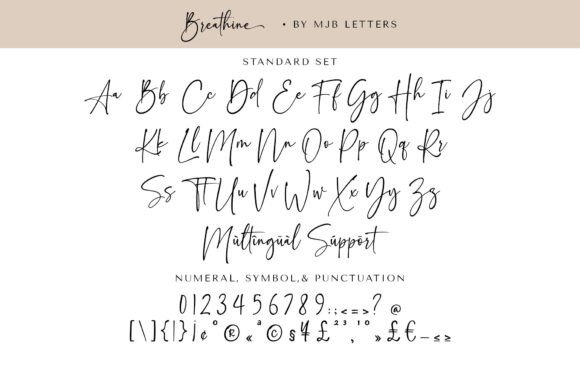 Breathine • BY MJB LETTERS
STANDARD SET
Aa Bb Cc Dd Ee Ff Gg Hh Ii Jj
Kk Ll Mm Nn Oo Pp Qq Rr
Ss Tt Uu Vv Ww Xx Yy Zz
Mùltîngüàl Sùppört
NUMERAL, SYMBOL,& PUNCTUATION
0123456789:;<=>? @
[\]{|}¡¢°®«ª©§¥£²³¸¹º»£€–≤≥